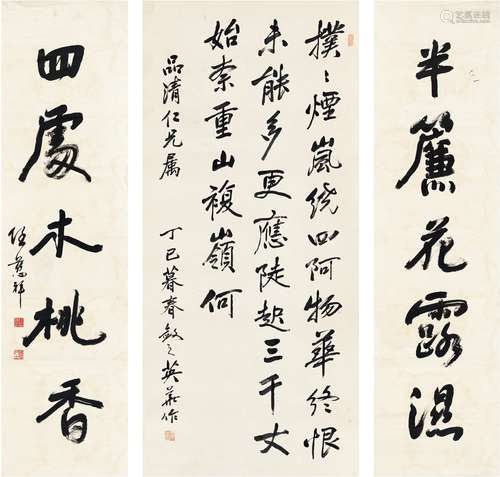 半簾花露濕
撲〻煙嵐繞四阿物華終恨
未能多更應陡起三千丈
始奈重山複嶺何
品清仁兄属
丁巳暮春敛之英華作
四處木桃香
任慈祥